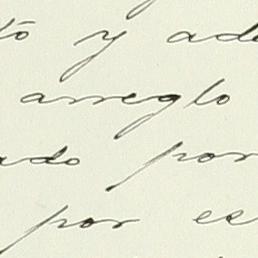 tó y ade
arreglo
ado por
por es